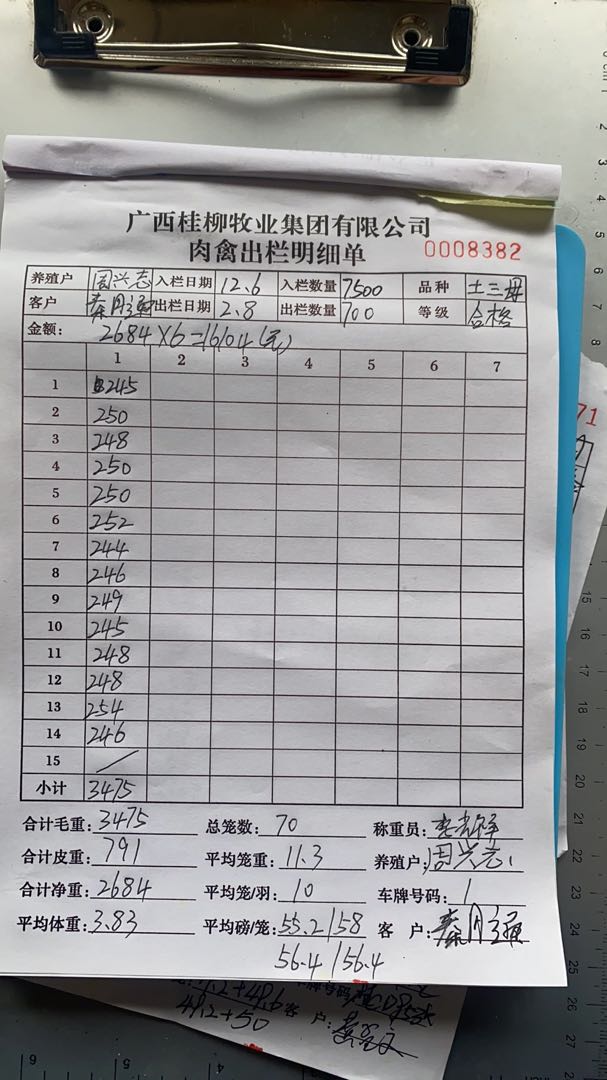 广西桂柳牧业集团有限公司
肉禽出栏明细单 0008382
养殖户 周兴志 入栏日期 12.6 入栏数量 7500 品种 土三母
客户 出栏日期 2.8 出栏数量 700 等级 合格
金额: 2684×6=16104(元)
1 2 3 4 5 6 7
1 245
2 250
3 248
4 250
5 250
6 252
7 244
8 246
9 249
10 245
11 248
12 248
13 254
14 246
15 /
小计 3475
合计毛重: 3475 总笼数: 70 称重员:
合计皮重: 791 平均笼重: 11.3 养殖户: 周兴志
合计净重: 2684 平均笼/羽: 10 车牌号码: 1
平均体重: 3.83 平均磅/笼: 55.2/58 客户:
56.4/56.4
车牌号码
49.2+50 客户:
71